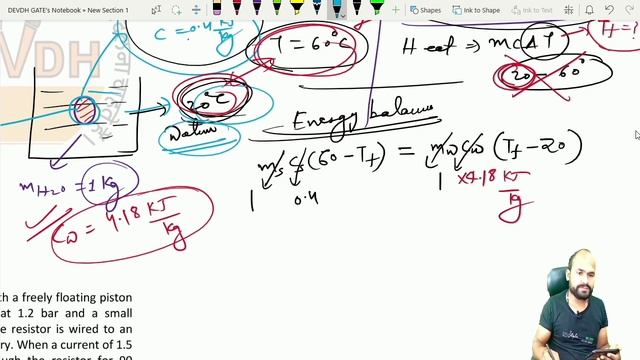 DEVDH GATE's Notebook » New Section 1
Shapes
Ink to Shape
Ink to Text
C = 0.4 KJ/kg
T = 60°C
Heat ⇒ mCΔT
Tf = ?
20 - 60°
20°C
Water
Energy balance
ms Cs (60 - Tf) = mw Cw (Tf - 20)
1 0.4 1 ×4.18 KJ/kg
mH2O = 1 kg
Cw = 4.18 KJ/kg
DH
h a freely floating piston
at 1.2 bar and a small
e resistor is wired to an
ry. When a current of 1.5
ugh the resistor for 90